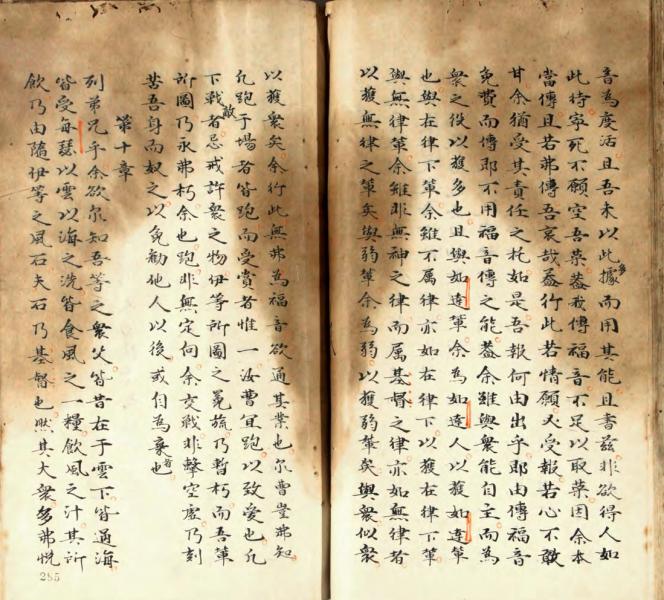 音為度活且吾未以此據而用其能且書茲非欲得人如
此待寧死不願空吾榮蓋我傳福音不足以取榮因余本
當傳且若弗傳吾哀哉蓋行此若情願必受報若心不敢
甘余猶受其責任之托如是吾報何由出乎即由傳福音
免費而傳即不用福音傳之能蓋余雖與衆能自主而為
衆之役以獲多也且與如達軰余為如達人以獲如達軰
也與在律下軰余雖不属律亦如在律下以獲在律下軰
與無律軰余雖非無神之律而属基督之律亦如無律者
以獲無律之軰矣與弱軰余為弱以獲弱軰矣與衆似衆
以獲衆矣余行此無弗為福音欲通其業也尔曹豈弗知
凡跑于場者皆跑而受賞者惟一汝曹宜跑以致愛也凡
下戰者忌戒許衆之物伊等所圖之冕旒乃暫朽而吾軰
敵
所圖乃永弗朽余也跑非無定向余交戰非擊空虛乃刻
苦吾身而奴之以免勸他人以後或自為棄者也
第十章
列弟兄乎余欲尔知吾等之衆父皆昔在于雲下皆通海
皆受每瑟以雲以海之洗皆食風之一糧飲風之汁其所
飲乃由隨伊等之風石夫石乃基督也然其大衆多弗悦
285